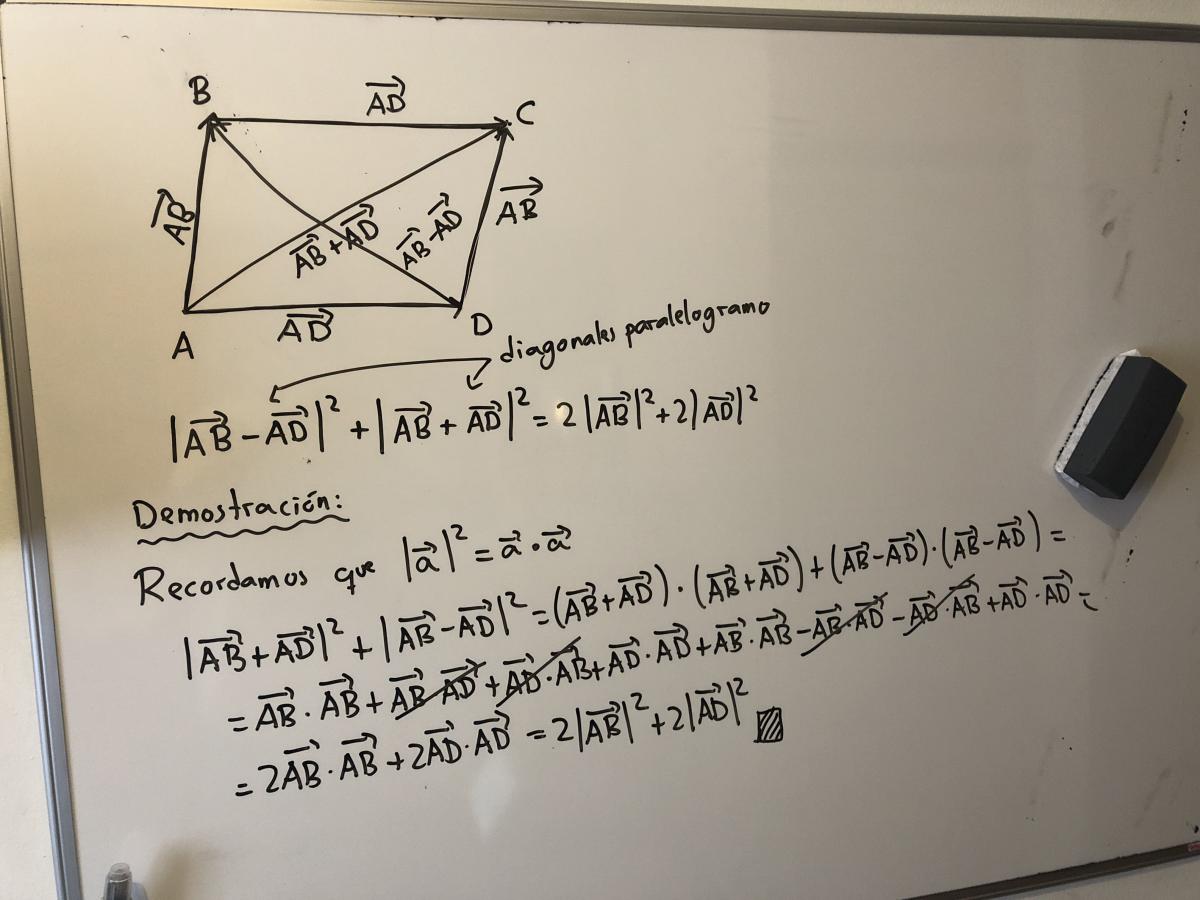 B
$\overrightarrow{AD}$
C
$\overrightarrow{AB}$
$\overrightarrow{AB}+\overrightarrow{AD}$
$\overrightarrow{AB}-\overrightarrow{AD}$
$\overrightarrow{AB}$
A
$\overrightarrow{AD}$
D
diagonales paralelogramo
$|\overrightarrow{AB}-\overrightarrow{AD}|^2+|\overrightarrow{AB}+\overrightarrow{AD}|^2=2|\overrightarrow{AB}|^2+2|\overrightarrow{AD}|^2$
Demostración:
Recordamos que $|\vec{a}|^2=\vec{a}\cdot\vec{a}$
$|\overrightarrow{AB}+\overrightarrow{AD}|^2+|\overrightarrow{AB}-\overrightarrow{AD}|^2=(\overrightarrow{AB}+\overrightarrow{AD})\cdot(\overrightarrow{AB}+\overrightarrow{AD})+(\overrightarrow{AB}-\overrightarrow{AD})\cdot(\overrightarrow{AB}-\overrightarrow{AD})=$
$=\overrightarrow{AB}\cdot\overrightarrow{AB}+\cancel{\overrightarrow{AB}\cdot\overrightarrow{AD}}+\cancel{\overrightarrow{AD}\cdot\overrightarrow{AB}}+\overrightarrow{AD}\cdot\overrightarrow{AD}+\overrightarrow{AB}\cdot\overrightarrow{AB}-\cancel{\overrightarrow{AB}\cdot\overrightarrow{AD}}-\cancel{\overrightarrow{AD}\cdot\overrightarrow{AB}}+\overrightarrow{AD}\cdot\overrightarrow{AD}=$
$=2\overrightarrow{AB}\cdot\overrightarrow{AB}+2\overrightarrow{AD}\cdot\overrightarrow{AD}=2|\overrightarrow{AB}|^2+2|\overrightarrow{AD}|^2$